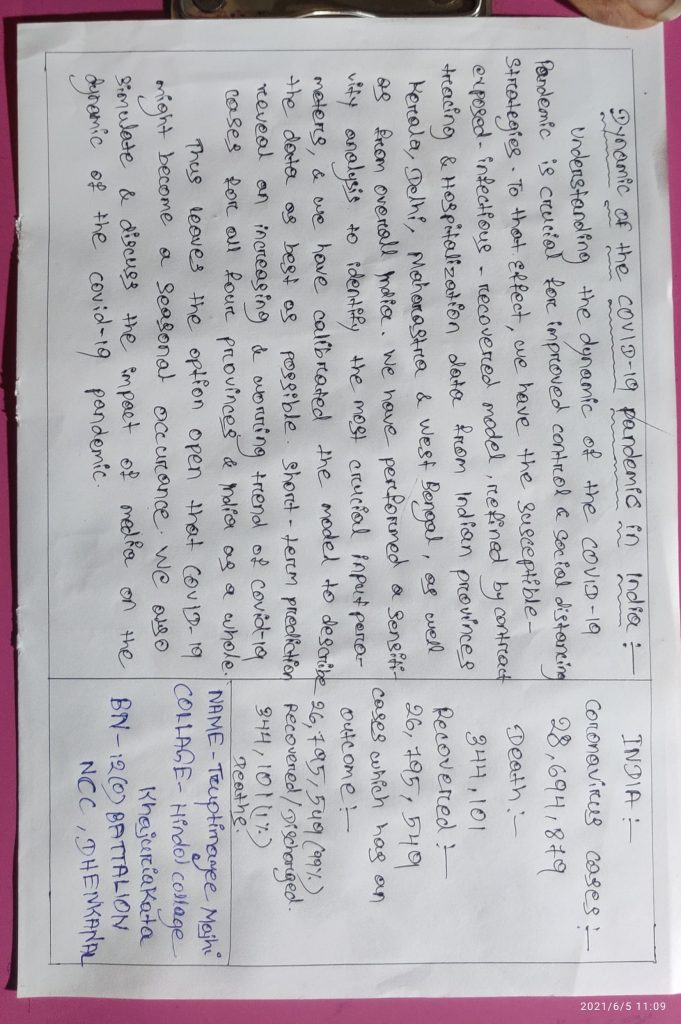 Dynamic of the COVID-19 pandemic in India :-
Understanding the dynamic of the COVID-19
Pandemic is crucial for improved control & social distancing
strategies. To that effect, we have the susceptible-
exposed-infectious-recovered model, refined by contract
tracing & Hospitalization data from Indian provinces
Kerala, Delhi, Maharastra & West Bengal, as well
as from overall India. We have performed a sensiti-
vity analysis to identify the most crucial input para-
meters, & we have calibrated the model to describe
the data as best as possible. Short-term prediction
reveal an increasing & worring trend of covid-19
cases for all four provinces & India as a whole.
Thus leaves the option open that COVID-19
might become a seasonal occurance. We also
simulate & discuss the impact of media on the
dynamic of the covid-19 pandemic.
INDIA :-
Coronavirus cases :-
28,694,879
Death :-
344,101
Recovered :-
26,795,549
cases which has an
outcome :-
26,795,549 (99%)
Recovered/Discharged.
344,101 (1%)
Deaths
NAME - Truptimayee Majhi
COLLAGE - Hindol collage
Khajuriakata
BN - 12(O) BATTALION
NCC, DHENKANAL
2021/6/5 11:09